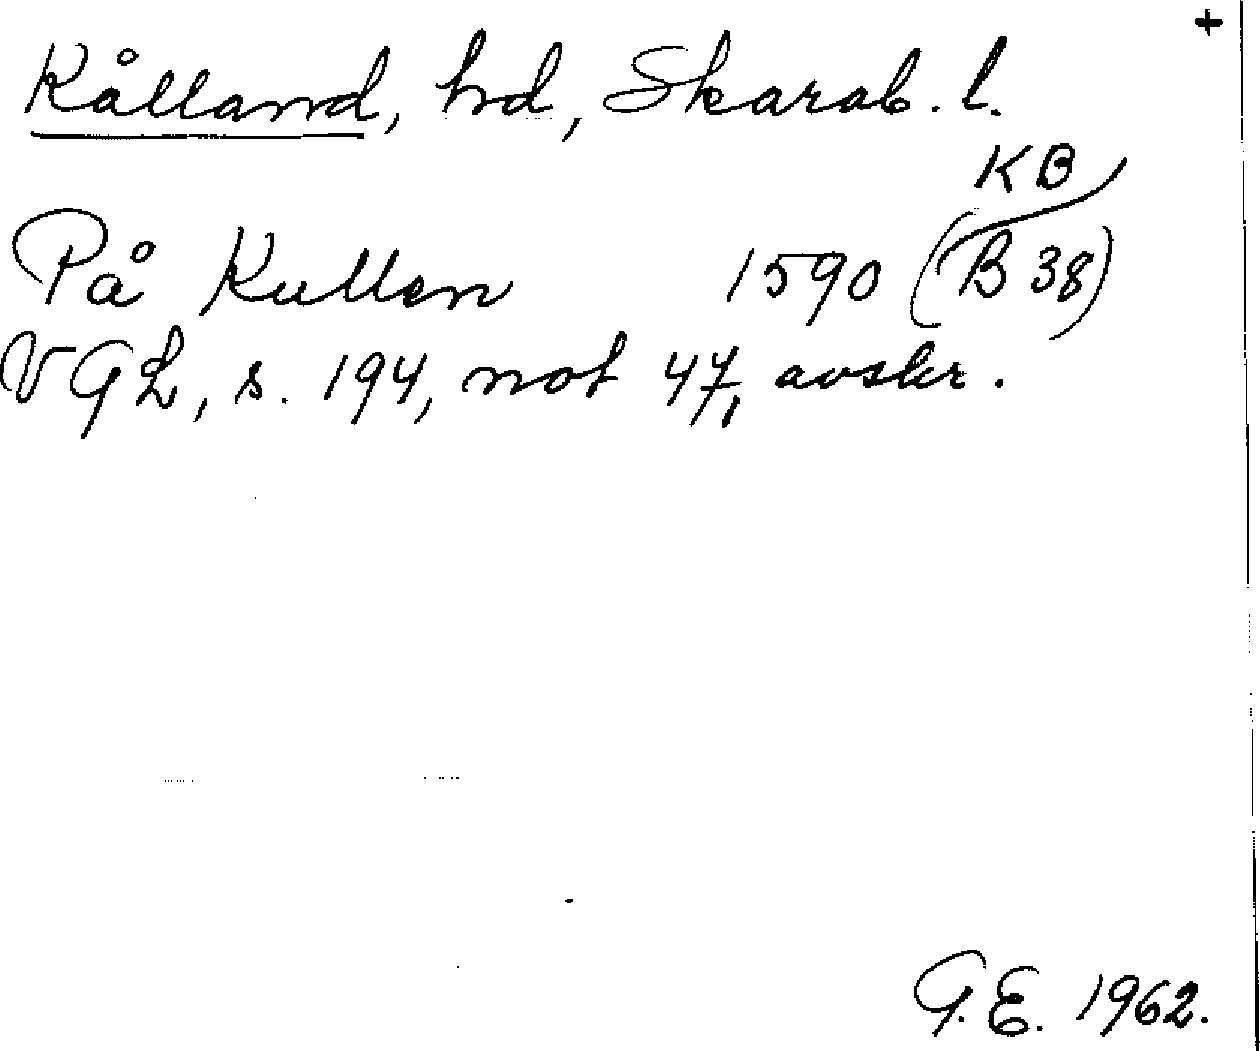 +
Kålland, hd, Skarab. l.
På Kullen 1590 (KB B 38)
VGL, s. 194, not 47, avskr.
G.E. 1962.